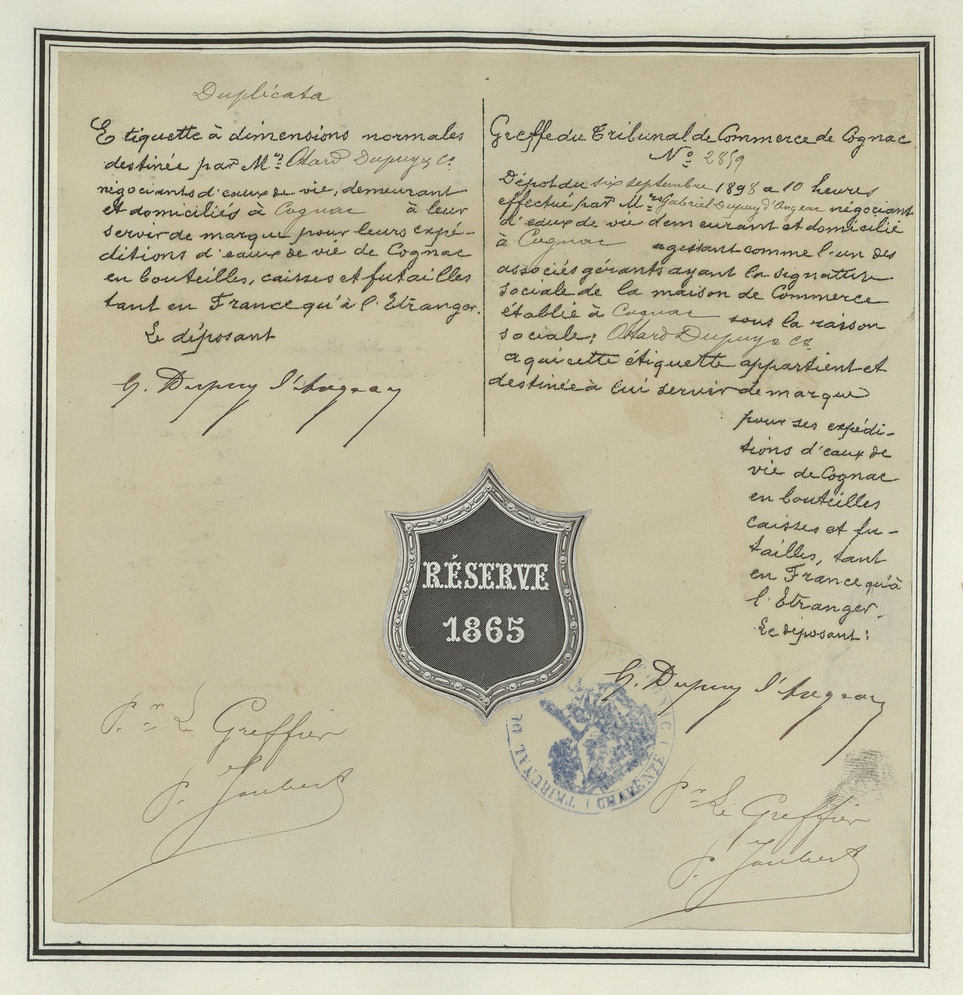 Duplicata
Etiquette à dimensions normales
destinée par Mrs Otard Dupuy & Co
négociants d'eaux de vie, demeurant
et domiciliés à Cognac à leur
servir de marque pour leurs expé-
ditions d'eaux de vie de Cognac
en bouteilles, caisses et futailles
tant en France qu'à l'Etranger.
Le déposant
G. Dupuy d'Angeac
Greffe du Tribunal de Commerce de Cognac
No 2859
Dépot du six septembre 1898 a 10 heures
effectué par Mr Gabriel Dupuy d'Angeac négociant
d'eaux de vie demeurant et domicilié
à Cognac agissant comme l'un des
associés gérants ayant la signature
sociale de la maison de Commerce
établie à Cognac sous la raison
sociale: Otard Dupuy & Co
a qui cette étiquette appartient et
destinée à lui servir de marque
pour ses expédi-
tions d'eaux de
vie de Cognac
en bouteilles
caisses et fu-
tailles, tant
en France qu'à
l'Etranger.
Le déposant:
G. Dupuy d'Angeac
RÉSERVE
1865
TRIBUNAL DE
( CHARENTE )
Pr Le Greffier
P. Joubert
Pr Le Greffier
P. Joubert